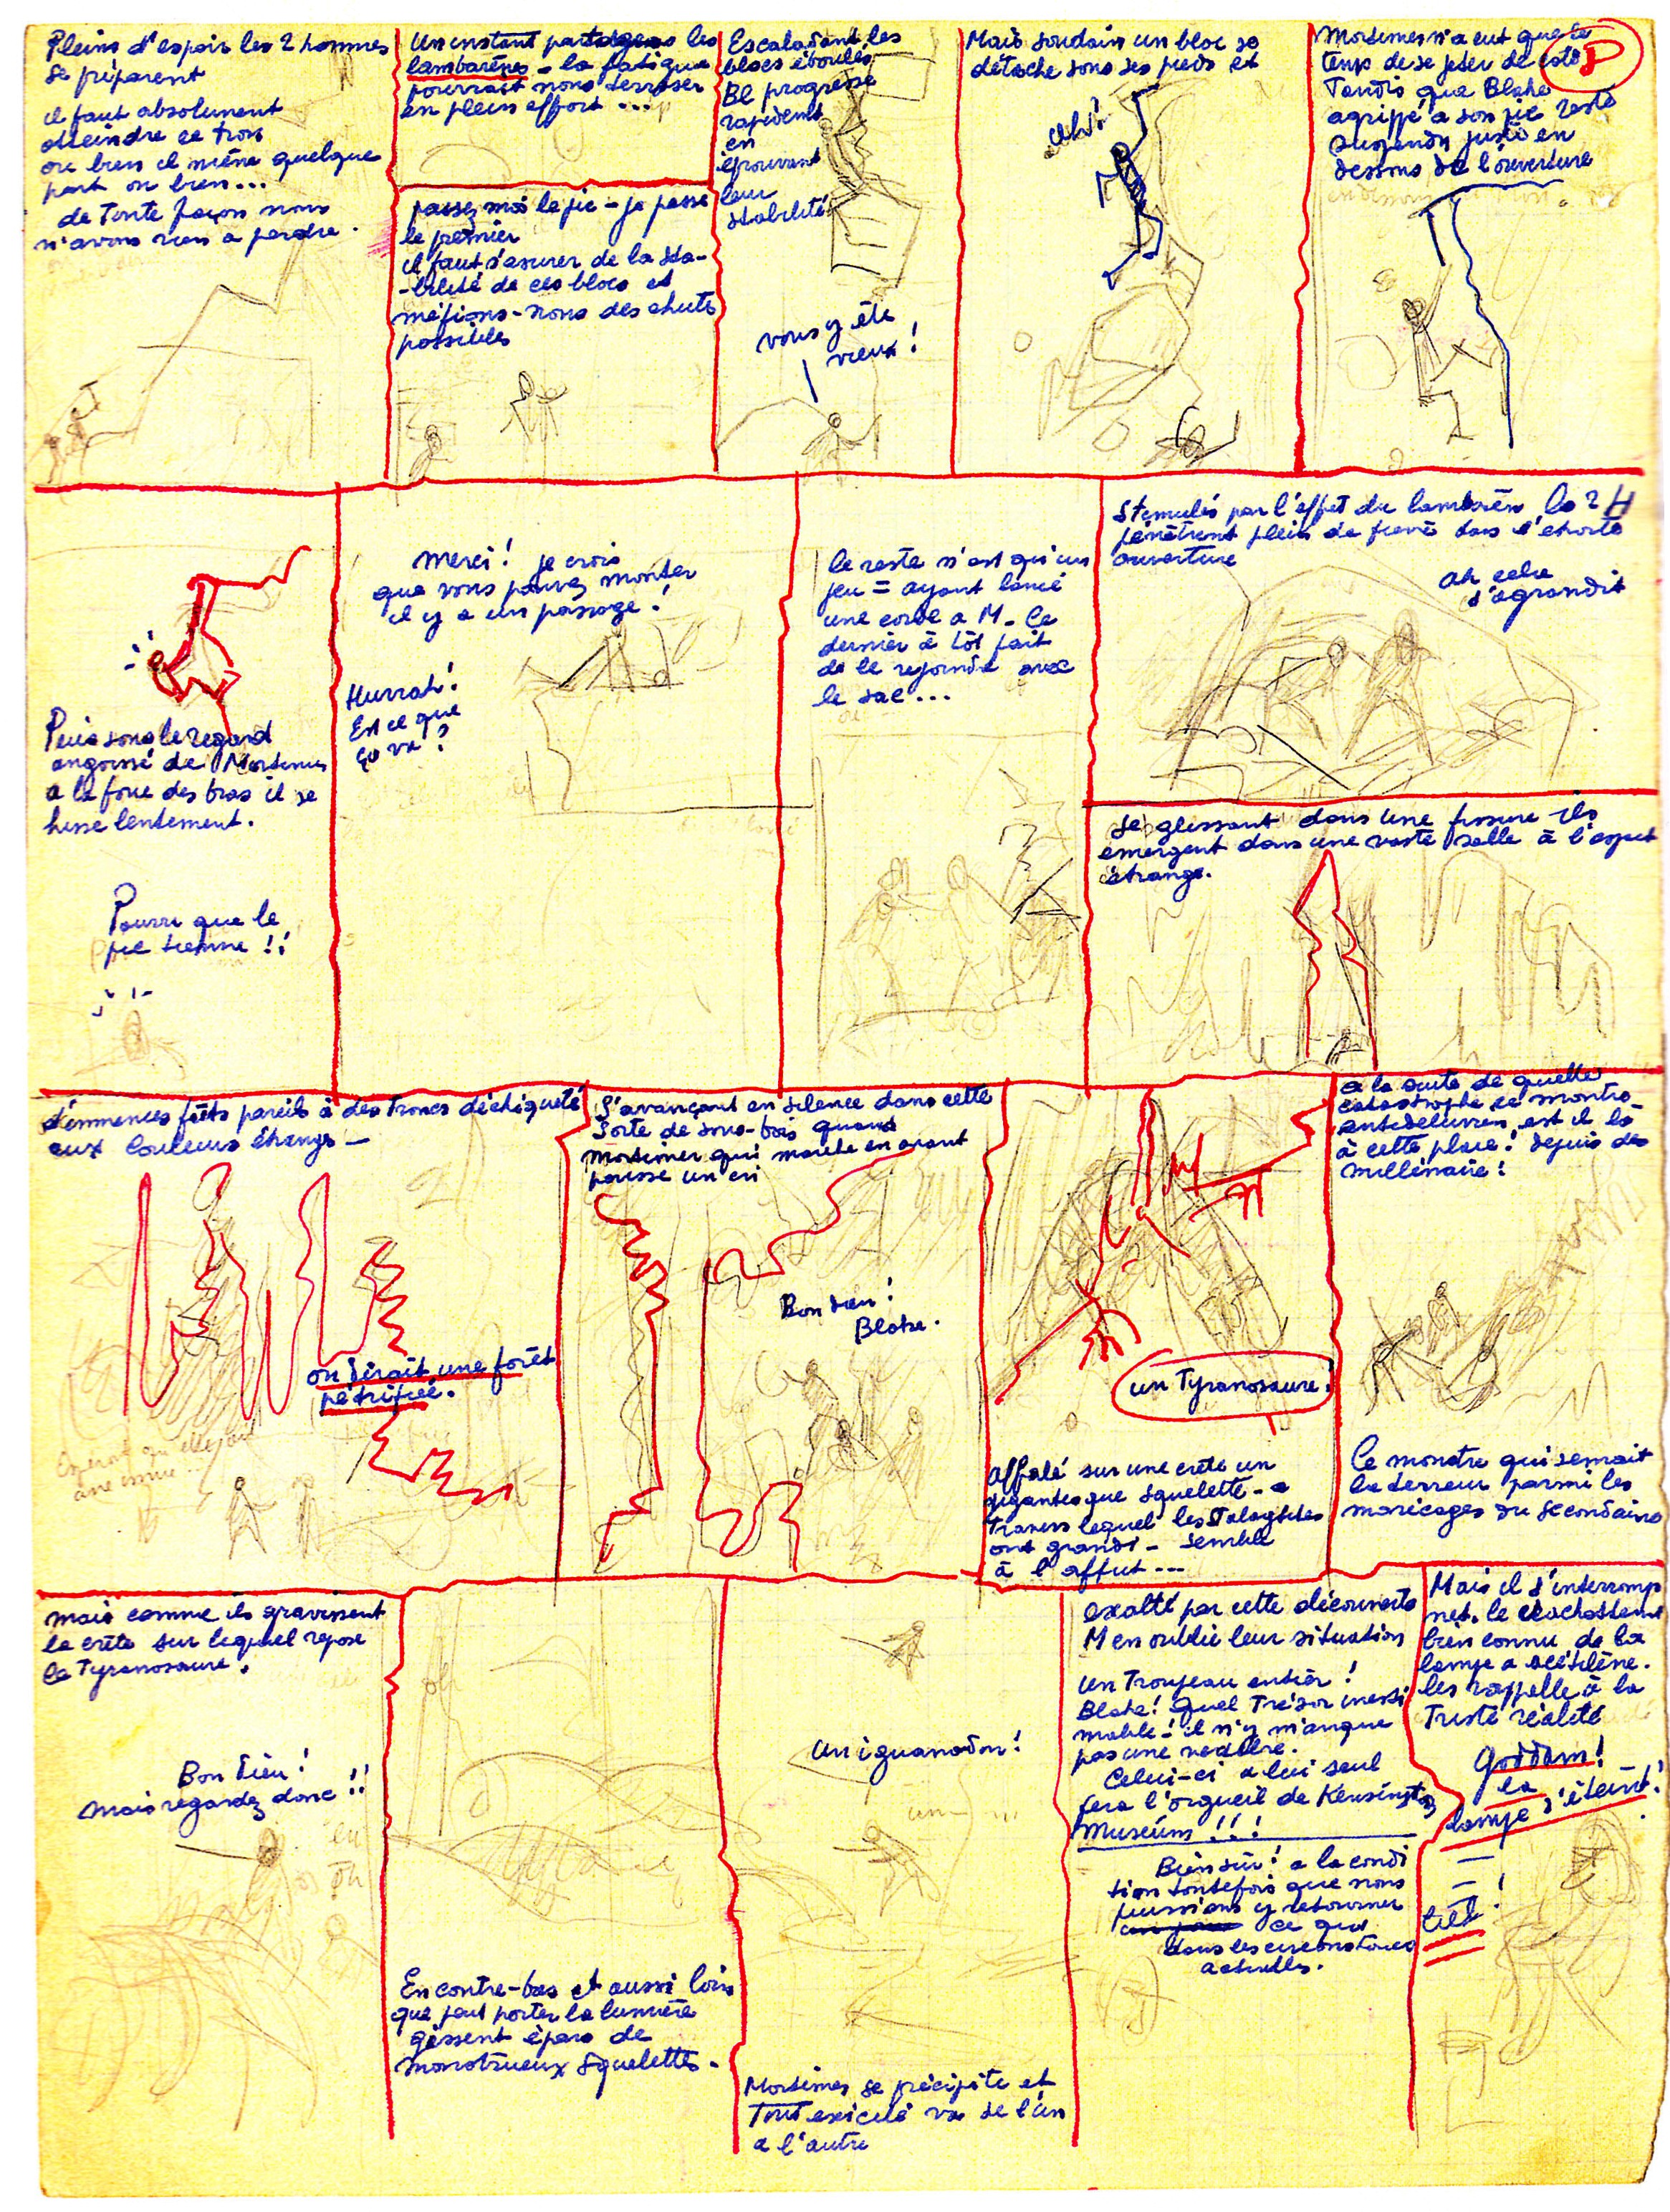 Pleins d'espoir les 2 hommes
se préparent
il faut absolument
atteindre ce trou
ou bien il mène quelque
part ou bien...
de toute façon nous
n'avons rien a perdre.
Un instant partageons les
lambarènes - la fatigue
pourrait nous terrasser
en plein effort ...
passez moi le pic - je passe
le premier
il faut s'assurer de la sta-
-bilité de ces blocs et
méfions-nous des chutes
possibles
Escaladant les
blocs éboulés
Bl progresse
rapidement
en
éprouvant
leur
stabilité
vous y ête
vieux!
Mais soudain un bloc se
détache sous ses pieds et
ah!
Mortimer n'a eut que le
temps de se jeter de coté
P
Tandis que Blake
agrippé a son pic reste
suspendu juste en
dessous de l'ouverture
Puis sous le regard
angoissé de Mortimer
a la force des bras il se
hisse lentement.
Pourvu que le
pic tienne !!
Merci! je crois
que vous pouvez monter
il y a un passage!
Hurrah!
Est ce que
ça va?
le reste n'est qu'un
jeu = ayant lancé
une corde a M. Ce
dernier à tôt fait
de le rejoindre avec
le sac...
Stimulés par l'effet du lambarèn les 2 H
pénètrent pleins de fièvre dans l'etroite
ouverture
Ah cela
s'agrandit
Se glissant dans une fissure ils
émergent dans une vaste salle à l'aspect
étrange.
d'immenses fûts pareils à des troncs déchiquetés
aux couleurs étranges -
on dirait une forêt
pétrifiée.
S'avançant en silence dans cette
sorte de sous-bois quand
Mortimer qui marche en avant
pousse un cri
Bon dieu!
Blake.
un Tyranosaure!
affalé sur une crête un
gigantesque squelette - a
travers lequel les stalagtites
ont grandi - semble
à l'affut...
a la suite de quelle
catastrophe ce monstre
antédiluvien est il là
à cette place! depuis des
millénaires!
Ce monstre qui semait
la terreur parmi les
marécages du secondaire
mais comme ils gravissent
la crête sur lequel repose
le Tyranosaure.
Bon Dieu!
mais regardez donc !!
En contre-bas et aussi loin
que peut porter la lumière
gissent épars de
monstrueux squelettes.
Un iguanodon!
Mortimer se précipite et
Tout exicité va de l'un
a l'autre
exalté par cette découverte
M en oublie leur situation
un Troupeau entier!
Blake! quel Trésor inesti
mable! il n'y manque
pas une vertèbre.
Celui-ci a lui seul
fera l'orgueil de Kensington
Museum !!!
Bien sûr! a la condi
tion toutefois que nous
puissions y retourner
ce qui
dans les circonstances
actuelles.
Mais il s'interromp
net. le crachottement
bien connu de la
lampe a acétilène.
les rappelle à la
Triste réalité
Goddam!
la
lampe s'éteint!